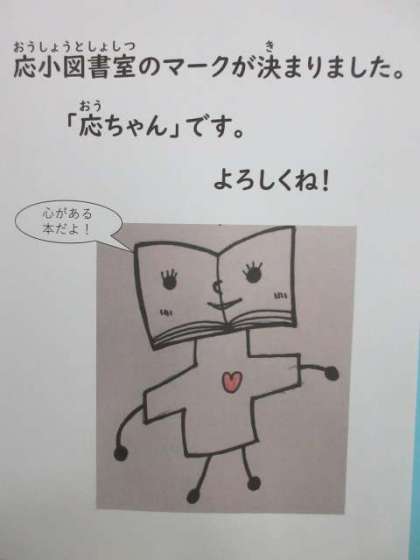 おうしょうとしょしつ き
応小図書室のマークが決まりました。
おう
「応ちゃん」です。
よろしくね！
心がある
本だよ！